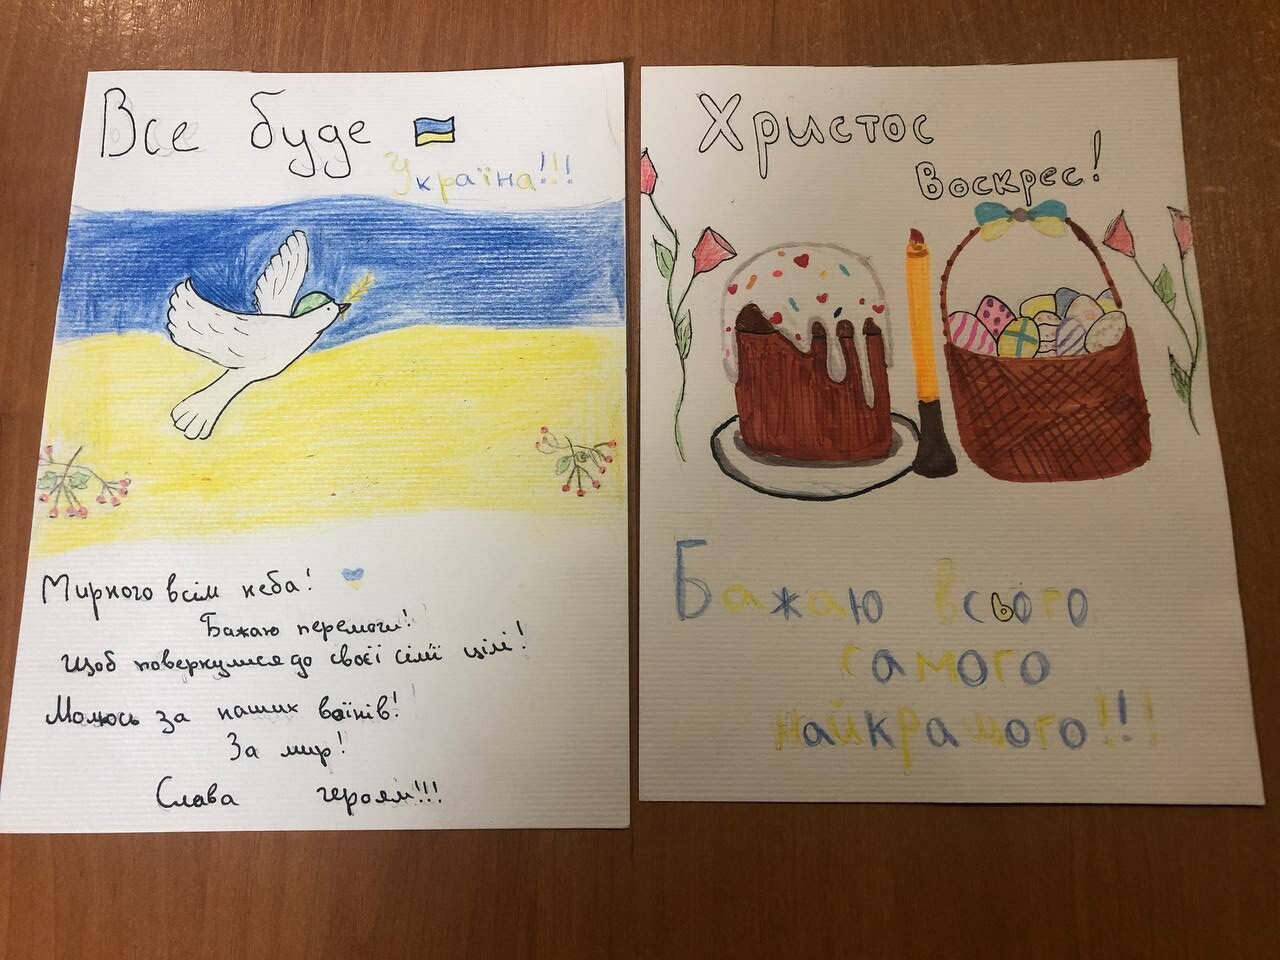 Все буде
Україна!!!
Мирного всім неба!
Бажаю перемоги!
Щоб повернулися до своєї сімї цілі!
Молюсь за наших воїнів!
За мир!
Слава героям!!!
Христос
Воскрес!
Бажаю всього
самого
найкращого!!!